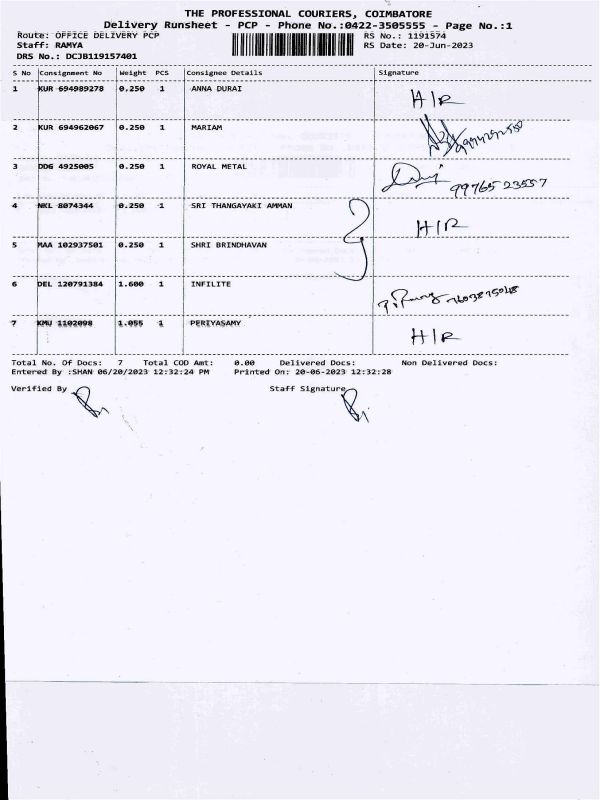 THE PROFESSIONAL COURIERS, COIMBATORE
Delivery Runsheet - PCP - Phone No.:0422-3505555 - Page No.:1
Route: OFFICE DELIVERY PCP RS No.: 1191574
Staff: RAMYA RS Date: 20-Jun-2023
DRS No.: DCJB119157401
S No Consignment No Weight PCS Consignee Details Signature
1 KUR 694989278 0.250 1 ANNA DURAI H/R
2 KUR 694962067 0.250 1 MARIAM
3 DDG 4925005 0.250 1 ROYAL METAL 9976523557
4 NKL 8074344 0.250 1 SRI THANGAYAKI AMMAN H/R
5 MAA 102937501 0.250 1 SHRI BRINDHAVAN
6 DEL 120791384 1.600 1 INFILITE
7 KMU 1102098 1.055 1 PERIYASAMY H/R
Total No. Of Docs: 7 Total COD Amt: 0.00 Delivered Docs: Non Delivered Docs:
Entered By :SHAN 06/20/2023 12:32:24 PM Printed On: 20-06-2023 12:32:28
Verified By Staff Signature